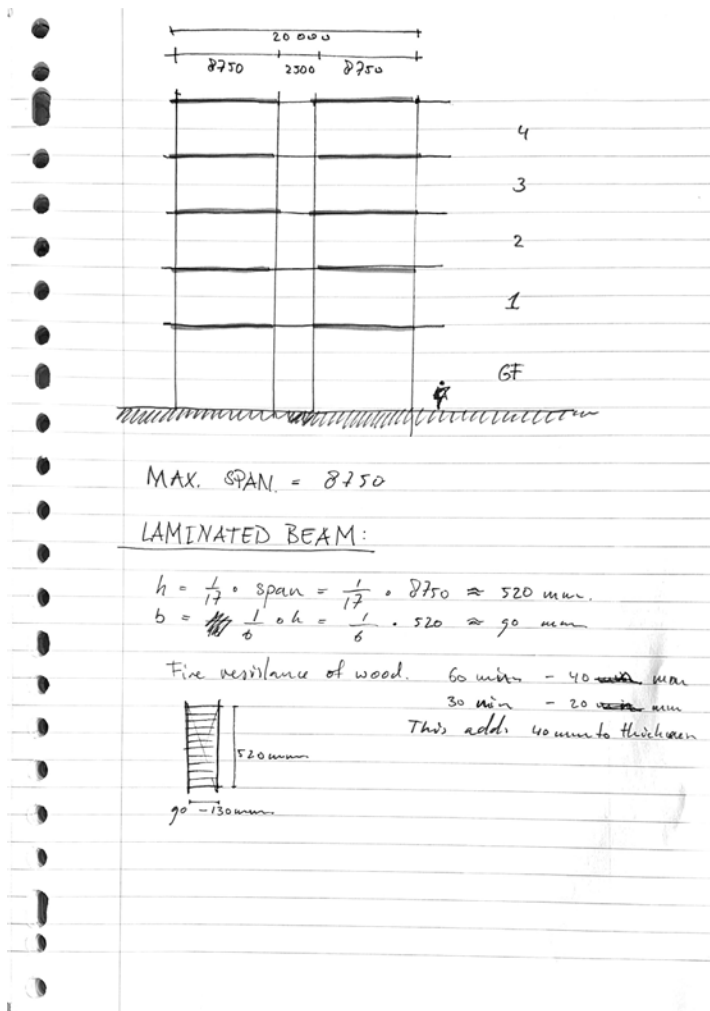 20 000
8750 2500 8750
4
3
2
1
GF
MAX. SPAN. = 8750
LAMINATED BEAM:
h = 1/17 • span = 1/17 • 8750 ≈ 520 mm.
b = 1/6 • h = 1/6 • 520 ≈ 90 mm
Fire resistance of wood. 60 min - 40 mm
30 min - 20 mm
This adds 40 mm to thickness
520 mm
90 - 130 mm